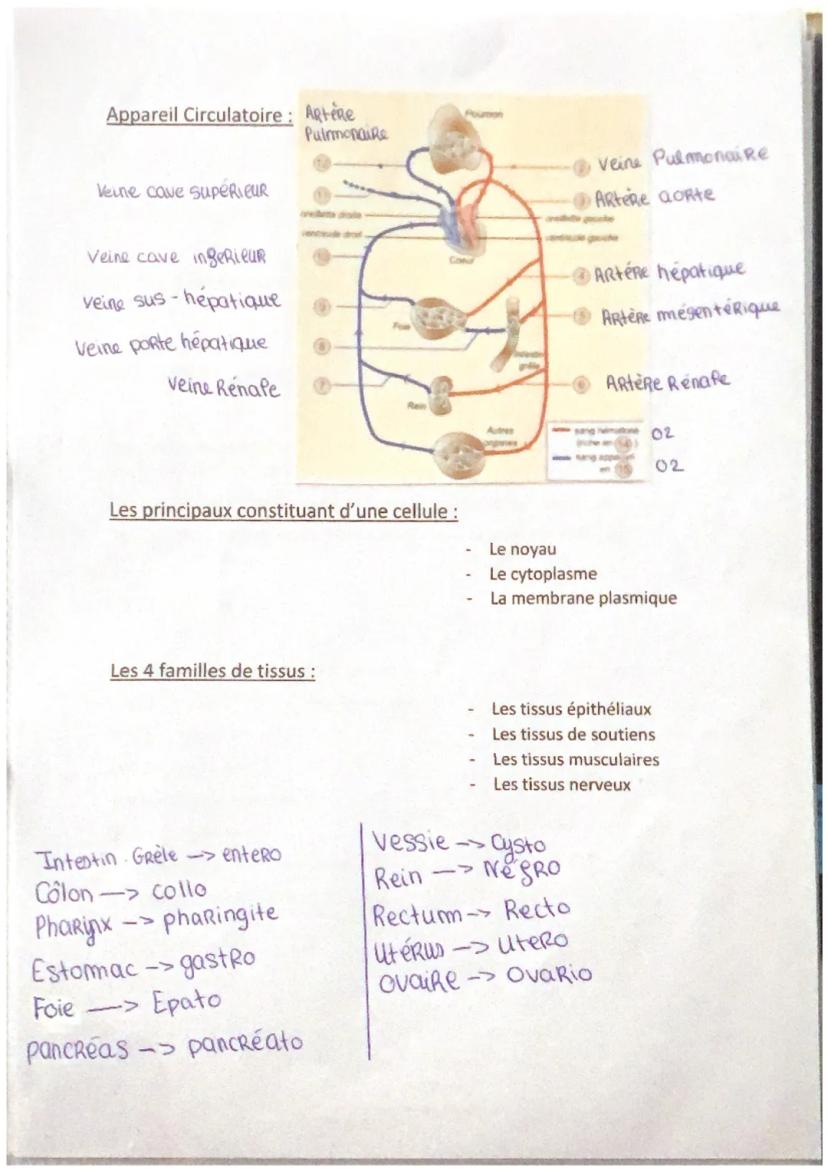 Appareil Circulatoire :
Artère
Pulmonaire
Poumon
12
2 Veine Pulmonaire
Veine cave supérieur
11
3 Artère aorte
oreillette droite
oreillette gauche
ventricule droit
ventricule gauche
Veine cave ingerieur
10
Coeur
4 Artére hépatique
Veine sus-hépatique
9
5 Artère mésentérique
Foie
Veine porte hépatique
8
intestin
grêle
Veine Rénale
7
6 Artère Rénale
Rein
Autres
organes
sang hématosé
(riche en 14) O2
sang
en 15 O2
Les principaux constituant d'une cellule :
- Le noyau
- Le cytoplasme
- La membrane plasmique
Les 4 familles de tissus :
- Les tissus épithéliaux
- Les tissus de soutiens
- Les tissus musculaires
- Les tissus nerveux
Intestin Grèle -> entero
Côlon -> collo
Pharynx -> pharingite
Estomac -> gastro
Foie -> Epato
pancréas -> pancréato
Vessie -> Cysto
Rein -> Néfro
Rectum -> Recto
Utérus -> Utero
Ovaire -> Ovario